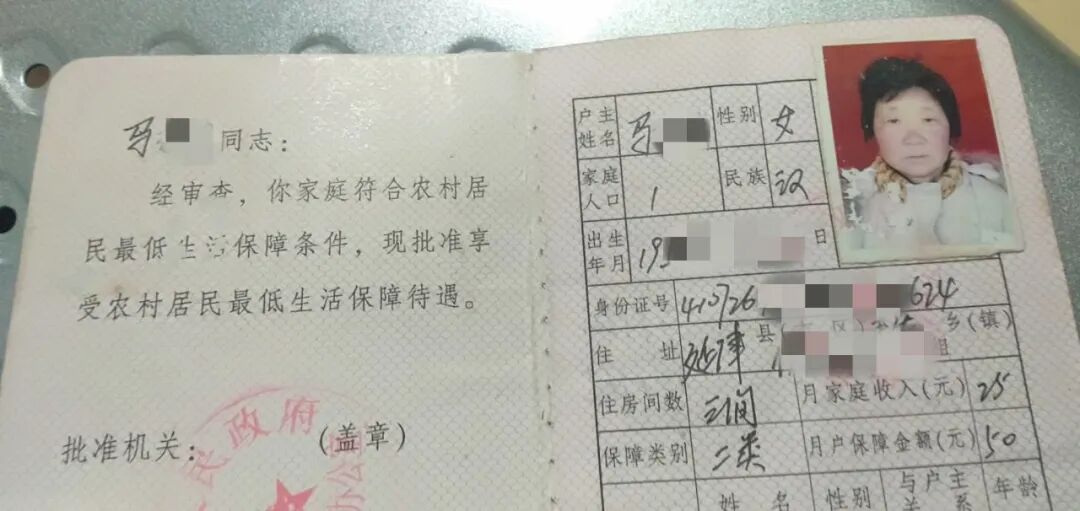 马 同志：
经审查，你家庭符合农村居
民最低生活保障条件，现批准享
受农村居民最低生活保障待遇。
批准机关： (盖章)
民政府
办公
户主姓名 马 性别 女
家庭人口 1 民族 汉
出生年月 19 日
身份证号 410726 624
住址 延津 县 乡(镇)
组
住房间数 三间 月家庭收入(元) 25
保障类别 二类 月户保障金额(元) 50
姓名 性别 与户主关系 年龄